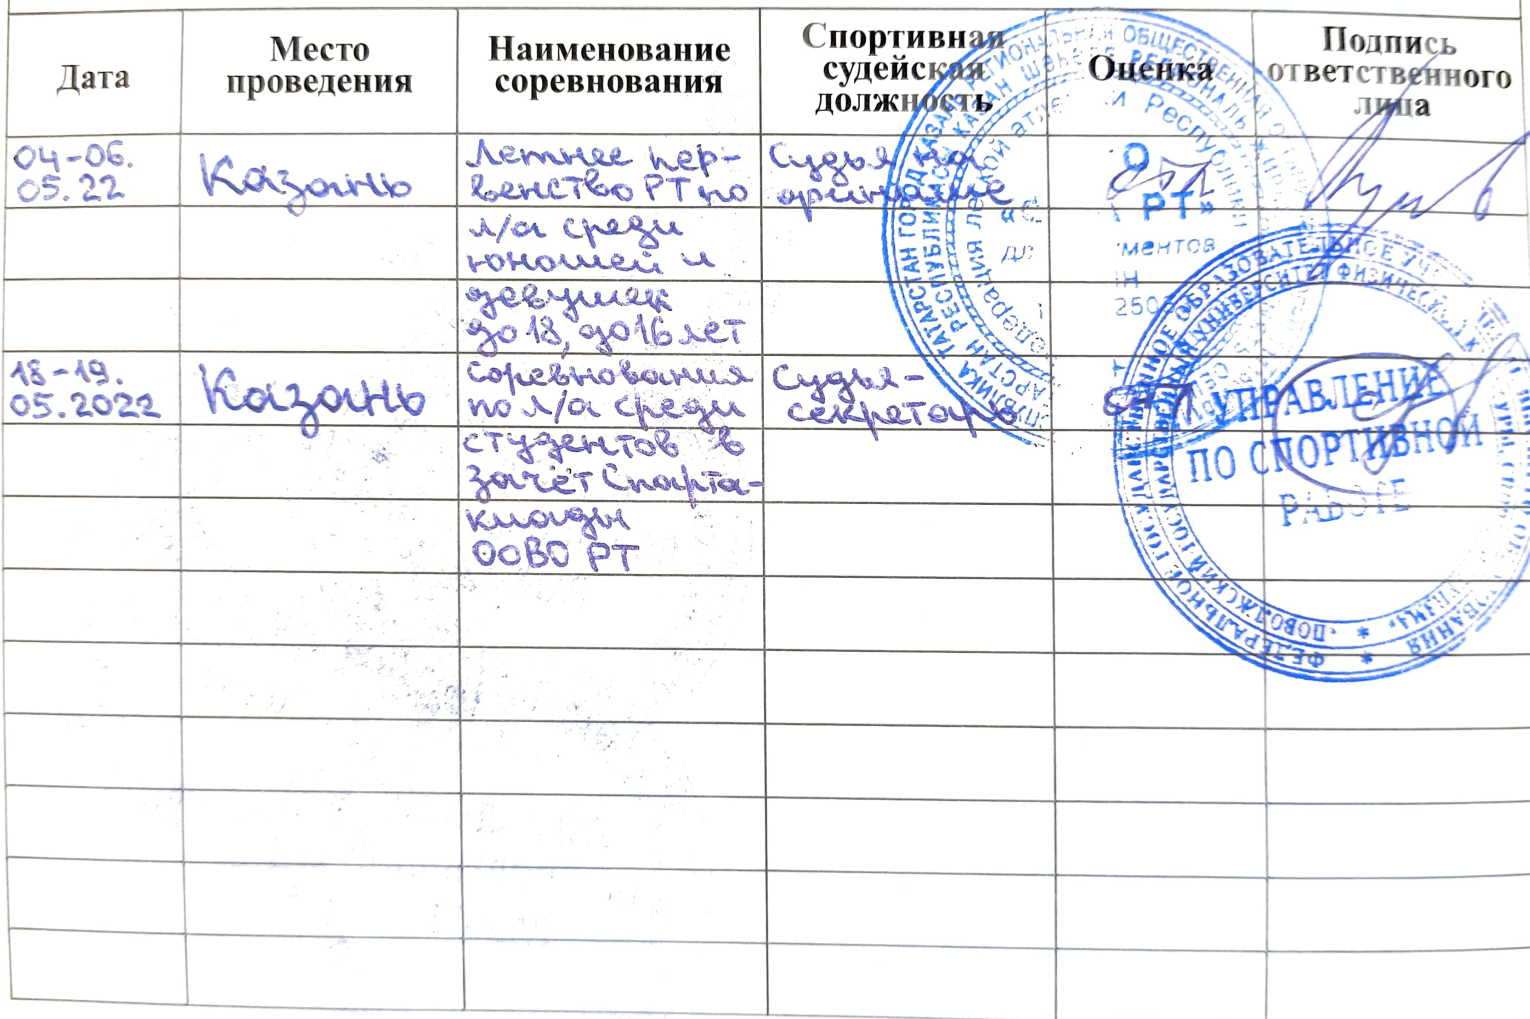 Дата
Место
проведения
Наименование
соревнования
Спортивная
судейская
должность
Оценка
Подпись
ответственного
лица
04-06.
05.22
Казань
Летнее пер-
венство РТ по
л/а среди
юношей и
девушек
до 18, до 16 лет
Судья на
финише
отл
18-19.
05.2022
Казань
соревнования
по л/а среди
студентов в
зачёт Спарта-
киады
ООВО РТ
Судья-
секретарь
отл
РТ»
УПРАВЛЕНИЕ
ПО СПОРТИВНОЙ
РАБОТЕ